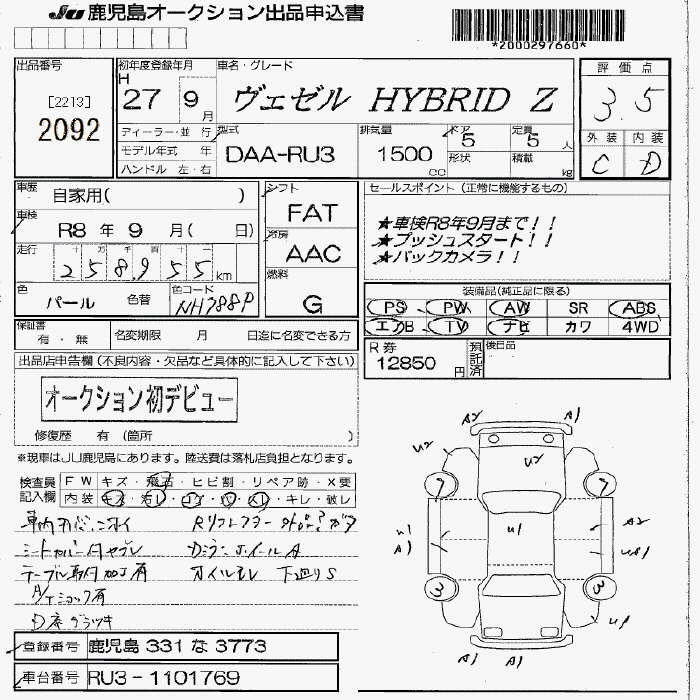 JU 鹿児島オークション出品申込書
*2000297660*
出品番号
[2213]
2092
初年度登録年月
H
27 9
月
車名・グレード
ヴェゼル HYBRID Z
評価点
3.5
外装 内装
C D
ディーラー・並 行
モデル年式 年
ハンドル 左・右
型式
DAA-RU3
排気量
1500
cc
ドア
5
形状
定員
5 人
積載
kg
車歴
自家用( )
車検
R8 年 9 月( 日)
走行
十 万 千 百 十 一
258955 km
色
パール 色替
色コード
NH788P
シフト
FAT
冷房
AAC
燃料
G
セールスポイント (正常に機能するもの)
★車検R8年9月まで!!
★プッシュスタート!!
★バックカメラ!!
装備品(純正品に限る)
PS PW AW SR ABS
エアB TV ナビ カワ 4WD
保証書
有・無
名変期限 月 日迄に名変できる方
R券
12850
円
預託済
後日品
出品店申告欄 (不良内容・欠品など具体的に記入して下さい)
オークション初デビュー
修復歴 有 (箇所 )
※現車はJU鹿児島にあります。陸送費は落札店負担となります。
検査員
記入欄
FW キズ・飛石・ヒビ割・リペア跡・X要
内装 キズ・汚レ・コゲ・穴・スレ・キレ・破レ
シートカバー
テーブル取付加工有
オイルモレ 下廻りS
A/Tショック有
D席ガラツキ
A2 A1
U2
U2
U1
U1
A1
A2
3
U1
A1 A1
登録番号 鹿児島 331 な 3773
車台番号 RU3-1101769